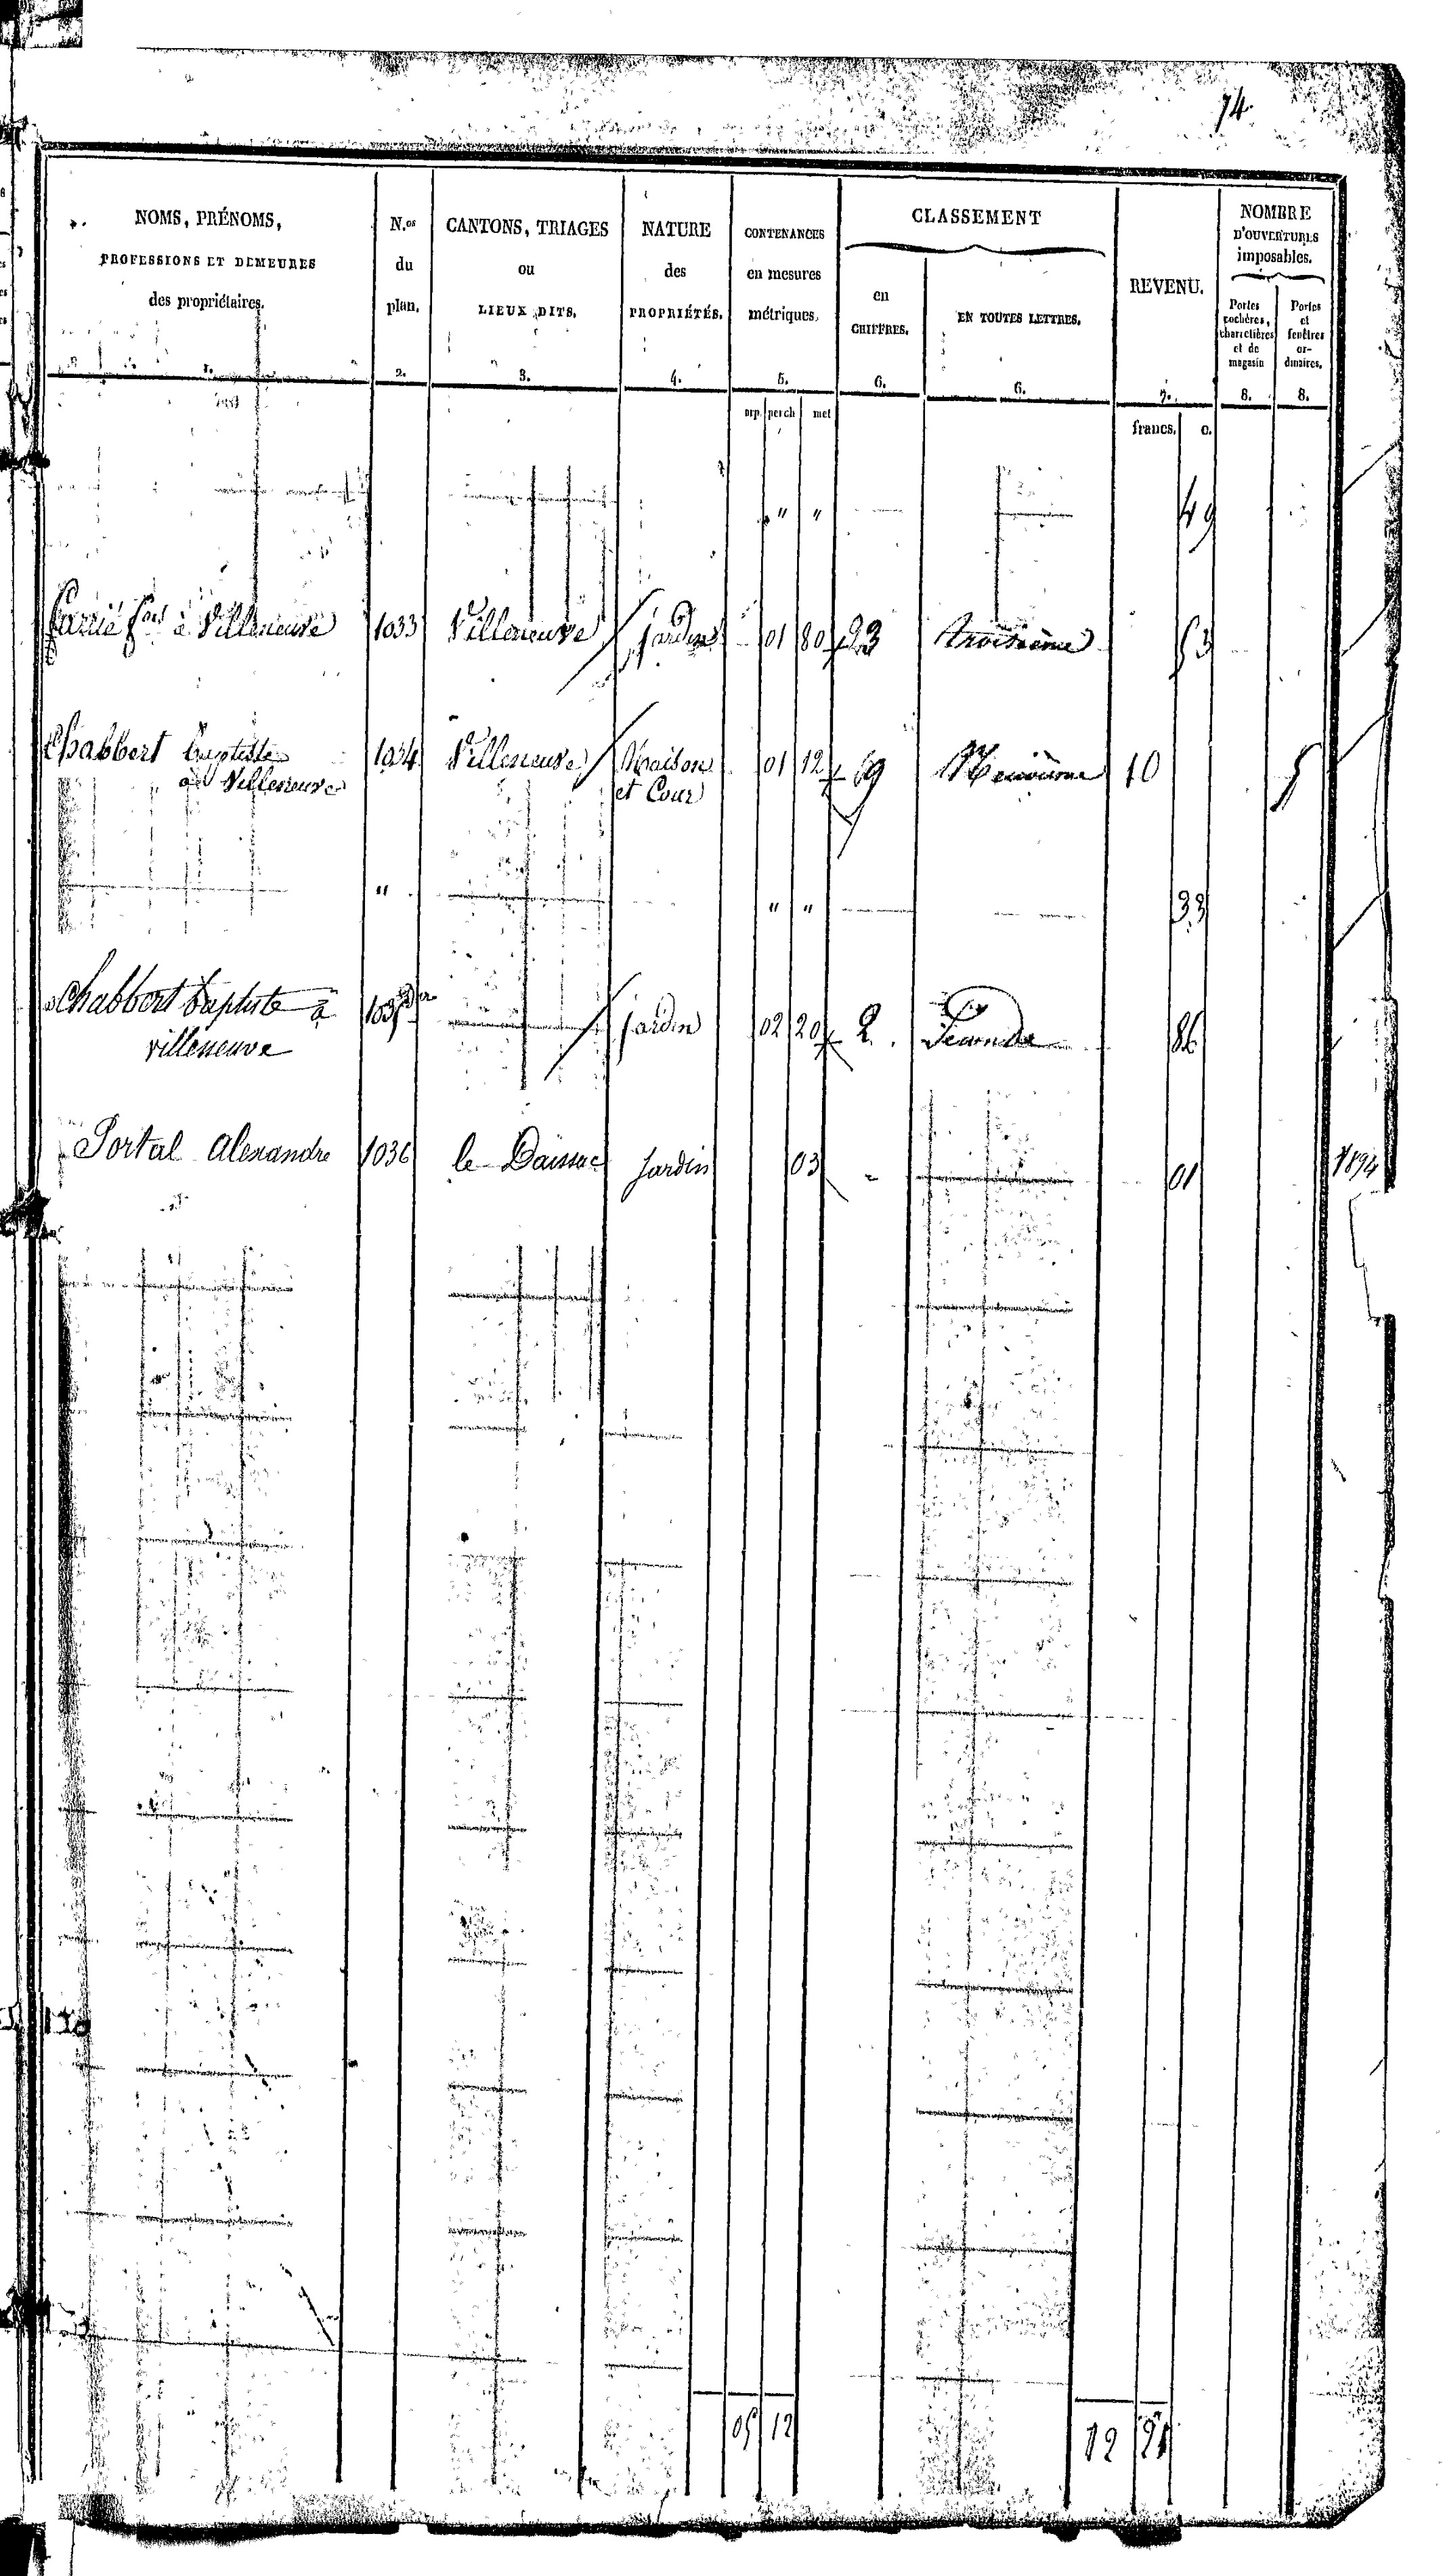 74
NOMS, PRÉNOMS,
PROFESSIONS ET DEMEURES
des propriétaires.
1.
N.os
du
plan.
2.
CANTONS, TRIAGES
ou
LIEUX DITS.
3.
NATURE
des
PROPRIÉTÉS.
4.
CONTENANCES
en mesures
métriques.
5.
CLASSEMENT
en
CHIFFRES.
6.
EN TOUTES LETTRES.
6.
REVENU.
7.
NOMBRE
D'OUVERTURES
imposables.
Portes
cochères,
charretières
et de
magasin
8.
Portes
et
fenêtres
or-
dinaires.
8.
arp. perch met
francs. c.
" " 49
à Villeneuve 1033 Villeneuve jardin 01 80 troisième 53
Chabbert Baptiste 1034 Villeneuve Maison 01 12 9 Neuvième 10
à Villeneuve et Cour
" " " 33
Chabbert baptiste à 1035 jardin 02 20 2 Seconde 86
villeneuve
Portal Alexandre 1036 le jardin 03 01 1894
05 12 12 21